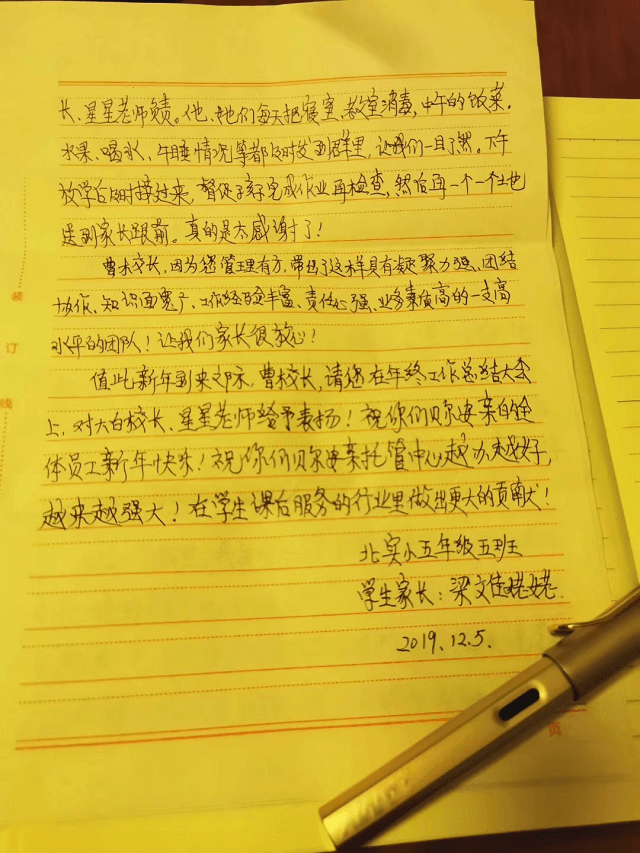 长、星星老师负责。他、她们每天把寝室、教室消毒,中午的饭菜。
水果、喝水、午睡情况等都及时发到群里,让我们一目了然。下午
放学后及时接过来,督促孩子完成作业再检查,然后再一个一个地
送到家长跟前。真的是太感谢了!
曹校长,因为您管理有方,带出了这样具有凝聚力强、团结
协作、知识面宽广、工作经验丰富、责任心强、业务素质高的一支高
水平的团队!让我们家长很放心!
值此新年到来之际,曹校长,请您在年终工作总结大会
上,对大白校长、星星老师给予表扬!祝你们贝尔安亲的全
体员工新年快乐!祝你们贝尔安亲托管中心越办越好,
越来越强大!在学生课后服务的行业里做出更大的贡献!
北实小五年级五班
学生家长:梁文佳姥姥.
2019.12.5.
装
订
线
页